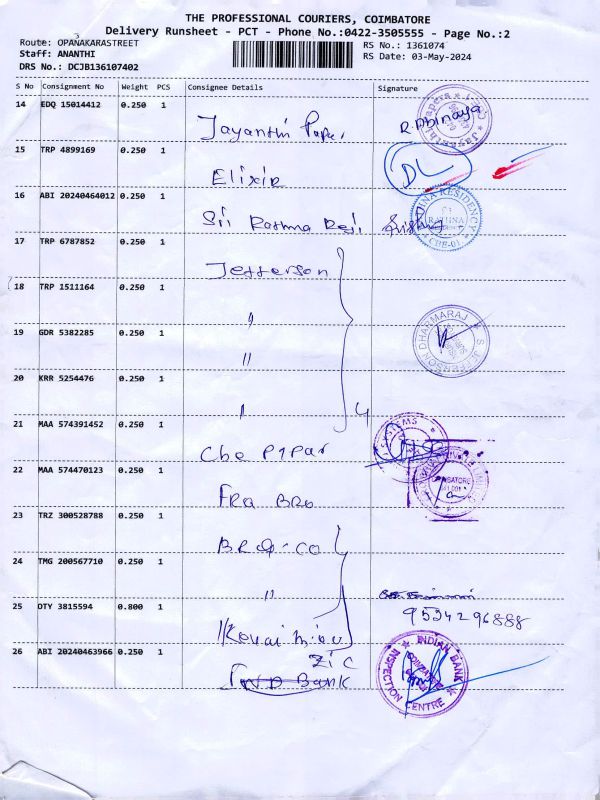 THE PROFESSIONAL COURIERS, COIMBATORE
Delivery Runsheet - PCT - Phone No.:0422-3505555 - Page No.:2
Route: OPANAKARASTREET
3
RS No.: 1361074
Staff: ANANTHI
RS Date: 03-May-2024
DRS No.: DCJB136107402
S No Consignment No Weight PCS Consignee Details Signature
14 EDQ 15014412 0.250 1
Jayanthi Paper R Abinaya
15 TRP 4899169 0.250 1
Elixir DL
16 ABI 20240464012 0.250 1
Sri Rathna Resi
RATHNA RESIDENCY
CBE-01
17 TRP 6787852 0.250 1
Jefferson
18 TRP 1511164 0.250 1
"
S. JEFFERSON DHARMARAJ
19 GDR 5382285 0.250 1
"
20 KRR 5254476 0.250 1
" 4
21 MAA 574391452 0.250 1
Cbe Pipar
SYSTEMS
22 MAA 574470123 0.250 1
Fra Bro
COIMBATORE
23 TRZ 300528788 0.250 1
BRO-CO
24 TMG 200567710 0.250 1
"
25 OTY 3815594 0.800 1
9534296888
Kovai
26 ABI 20240463966 0.250 1
ZIC
IND BANK
INDIAN BANK
INSPECTION CENTRE